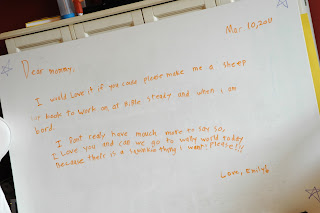 Mar 10, 2011
Dear mommy,
I would Love it if you could please make me a sheep
or book to work on at bible steady and when i am
bord.
I dont really have mouch more to say so,
I Love you and can we go to wally world today
because theïr is a thing I want! please!!!
Love, Emily